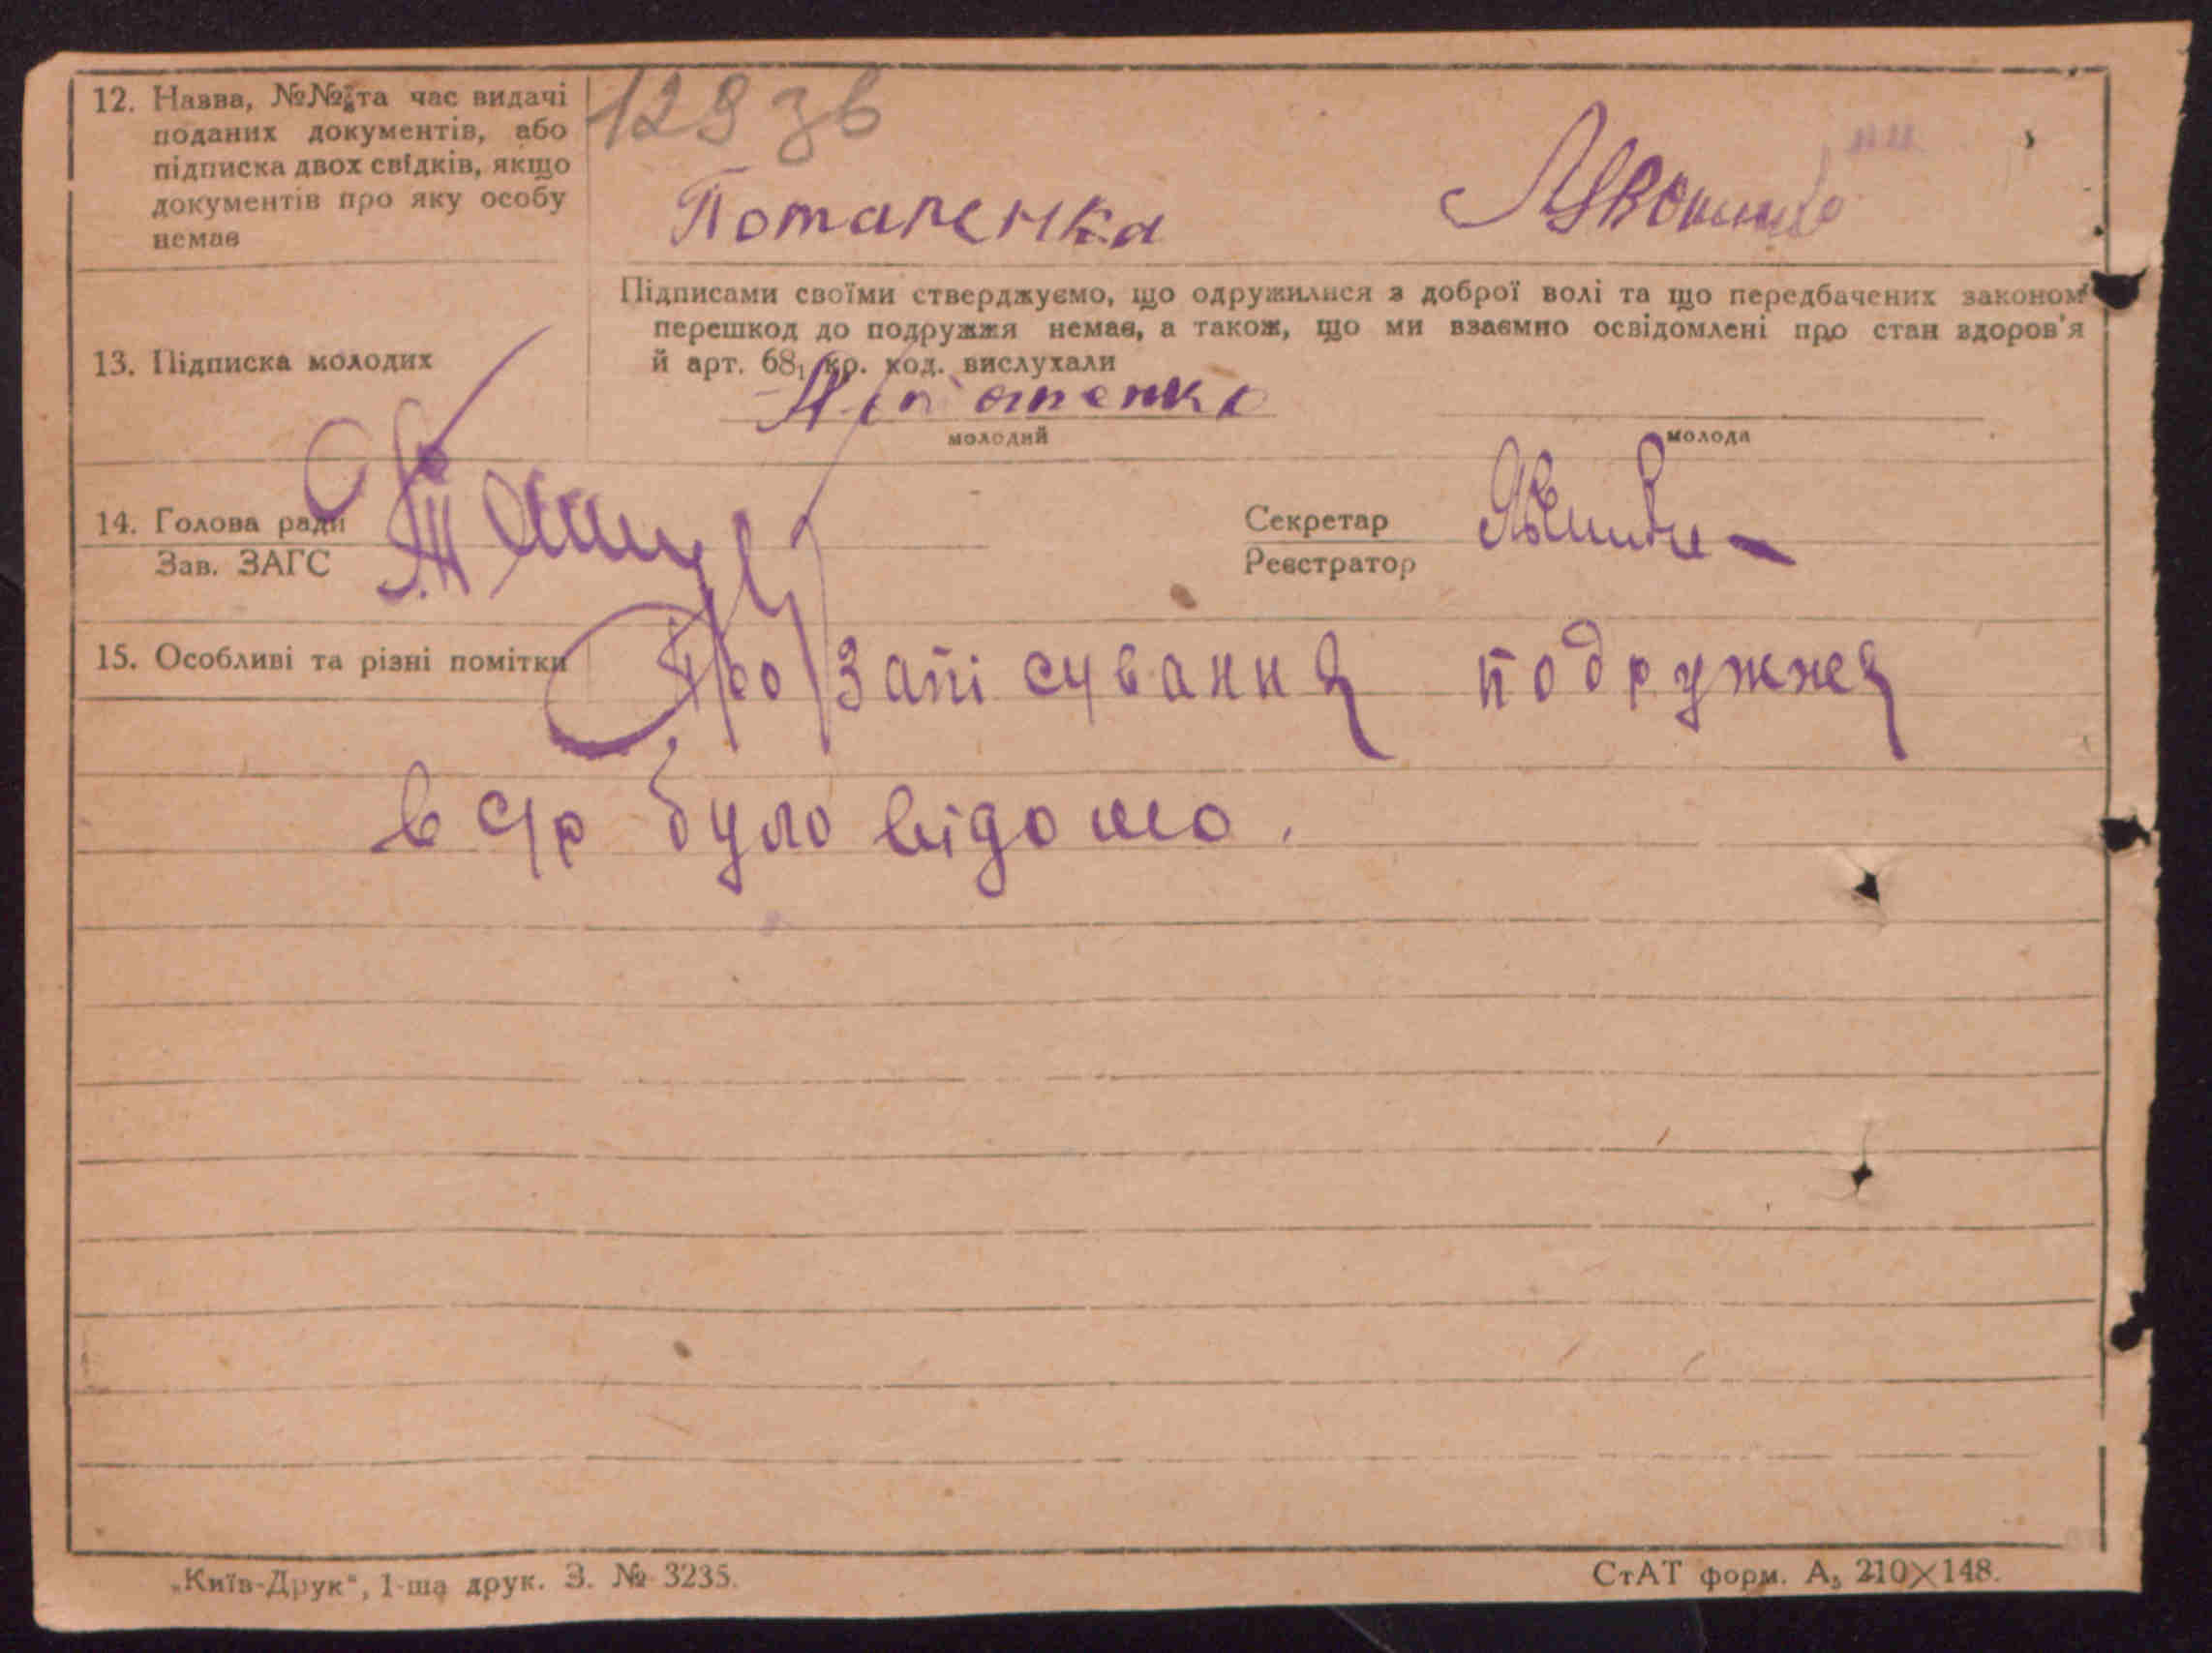 129 зв
12. Назва, №№ та час видачі
поданих документів, або
підписка двох свідків, якщо
документів про яку особу
немає
Потапенка
Підписами своїми стверджуємо, що одружилися з доброї волі та що передбачених законом
перешкод до подружжя немає, а також, що ми взаємно освідомлені про стан здоров'я
й арт. 68₁ кр. код. вислухали
13. Підписка молодих
молодий
молода
14. Голова ради
Зав. ЗАГС
Секретар
Реєстратор
15. Особливі та різні помітки
Про запісування подружжя
в с/р було відомо.
„Київ-Друк“, 1-ша друк. З. № 3235.
СтАТ форм. А₅ 210×148.